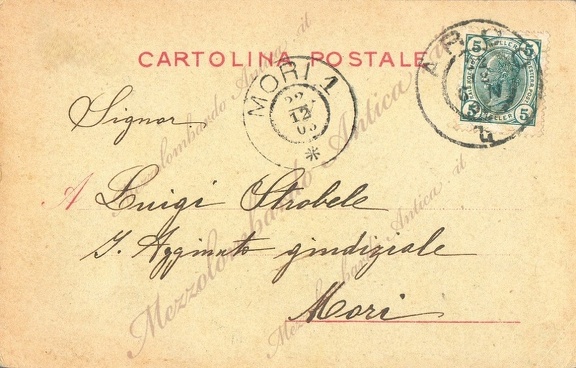 CARTOLINA POSTALE
MORI 1
22.
12
03
*
ARCO
5 HELLER 5
5 HELLER 5
Signor
A Luigi Strobele
I. Aggiunto giudiziale
Mori
Mezzolombardo Antica.it
Mezzolombardo Antica.it
Mezzolombardo Antica.it